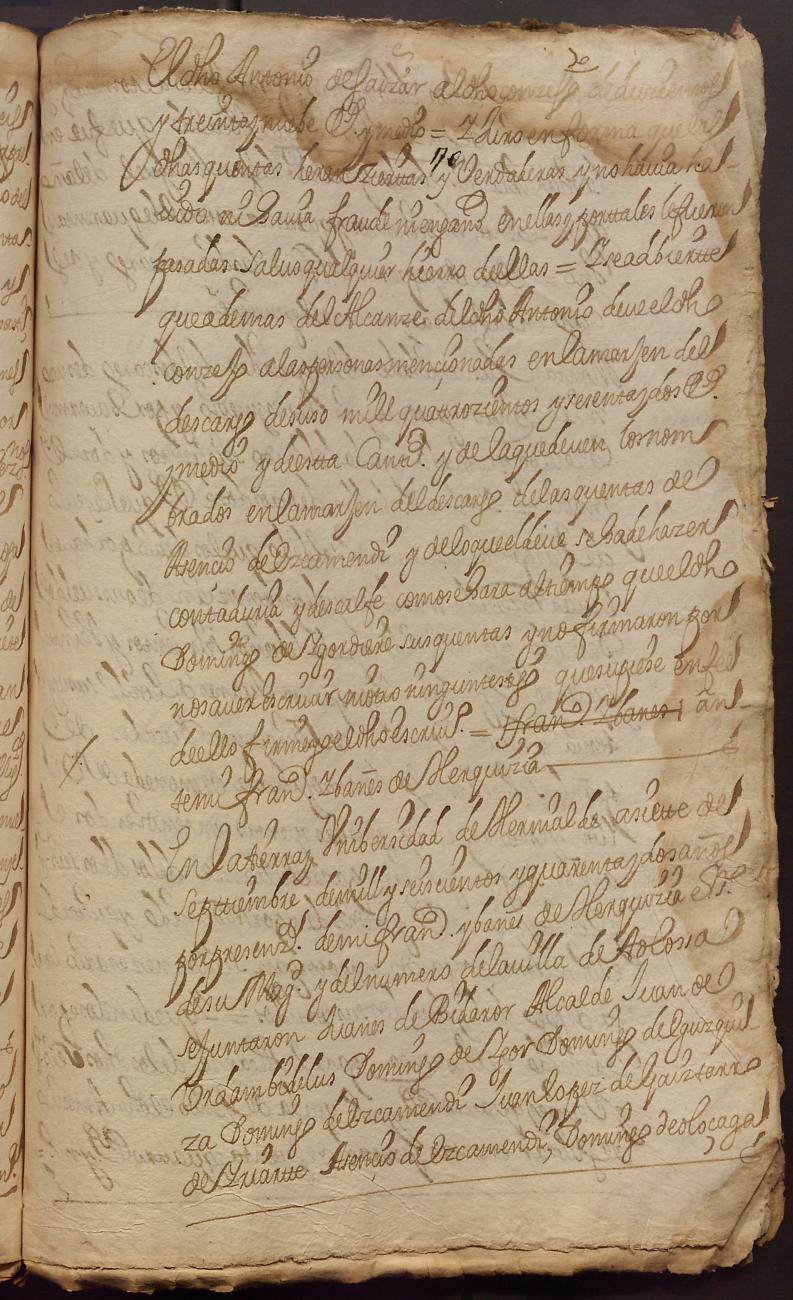 El dho Antonio de Saizar al dho conzejo de duzientos
y treinta y nuebe Rs. y medio = Y dixo en forma que las
170
dhas quentas heran ziertas y Verdaderas y no havia re-
uido ni havia fraude ni engaño en ellas y por tales le fueron
pasadas saluo qualquier hierro de ellas = Y se adbiertte
que ademas del Alcanze del dho Antonio deue el dho
conzejo a las personas mencionadas en la marjen del
descargo de suso mill quatrozientos y sesenta y dos Rs.
y medio y de esta Cantd. y de la que deuen los nom
brados en la marjen del descargo de las quentas de
Asencio de Vzcamendi y de lo que el deue se ha de hazer
contaduria y descalfe como se hara al tiempo que el dho
Domingo de Ygor diere sus quentas y no firmaron por
no sauer escriuir ni otro ningun testigo que supiese en fee
de ello firme yo el dho escriuo. = Frando. Ybanes | an-
temi Frando. Ybañes de Herquizia
En la tierra y Vnibersidad de Hernialde a siette de
septtiembre de mill y seiscientos y quarenta y dos años
por presenzia de mi Frando. ybanes de Herquizia essno.
de su Magd. y del numero de la uilla de Tolossa
se juntaron Juanes de Bidaror Alcalde Juan de
Vrdambidelus Domingo de Ygor Domingo de Eguzqui-
za Domingo de Vzcamendi Juan lopez de Gaiztarro
de Yriartte Asencio de Vzcamendi, Domingo de olocaga